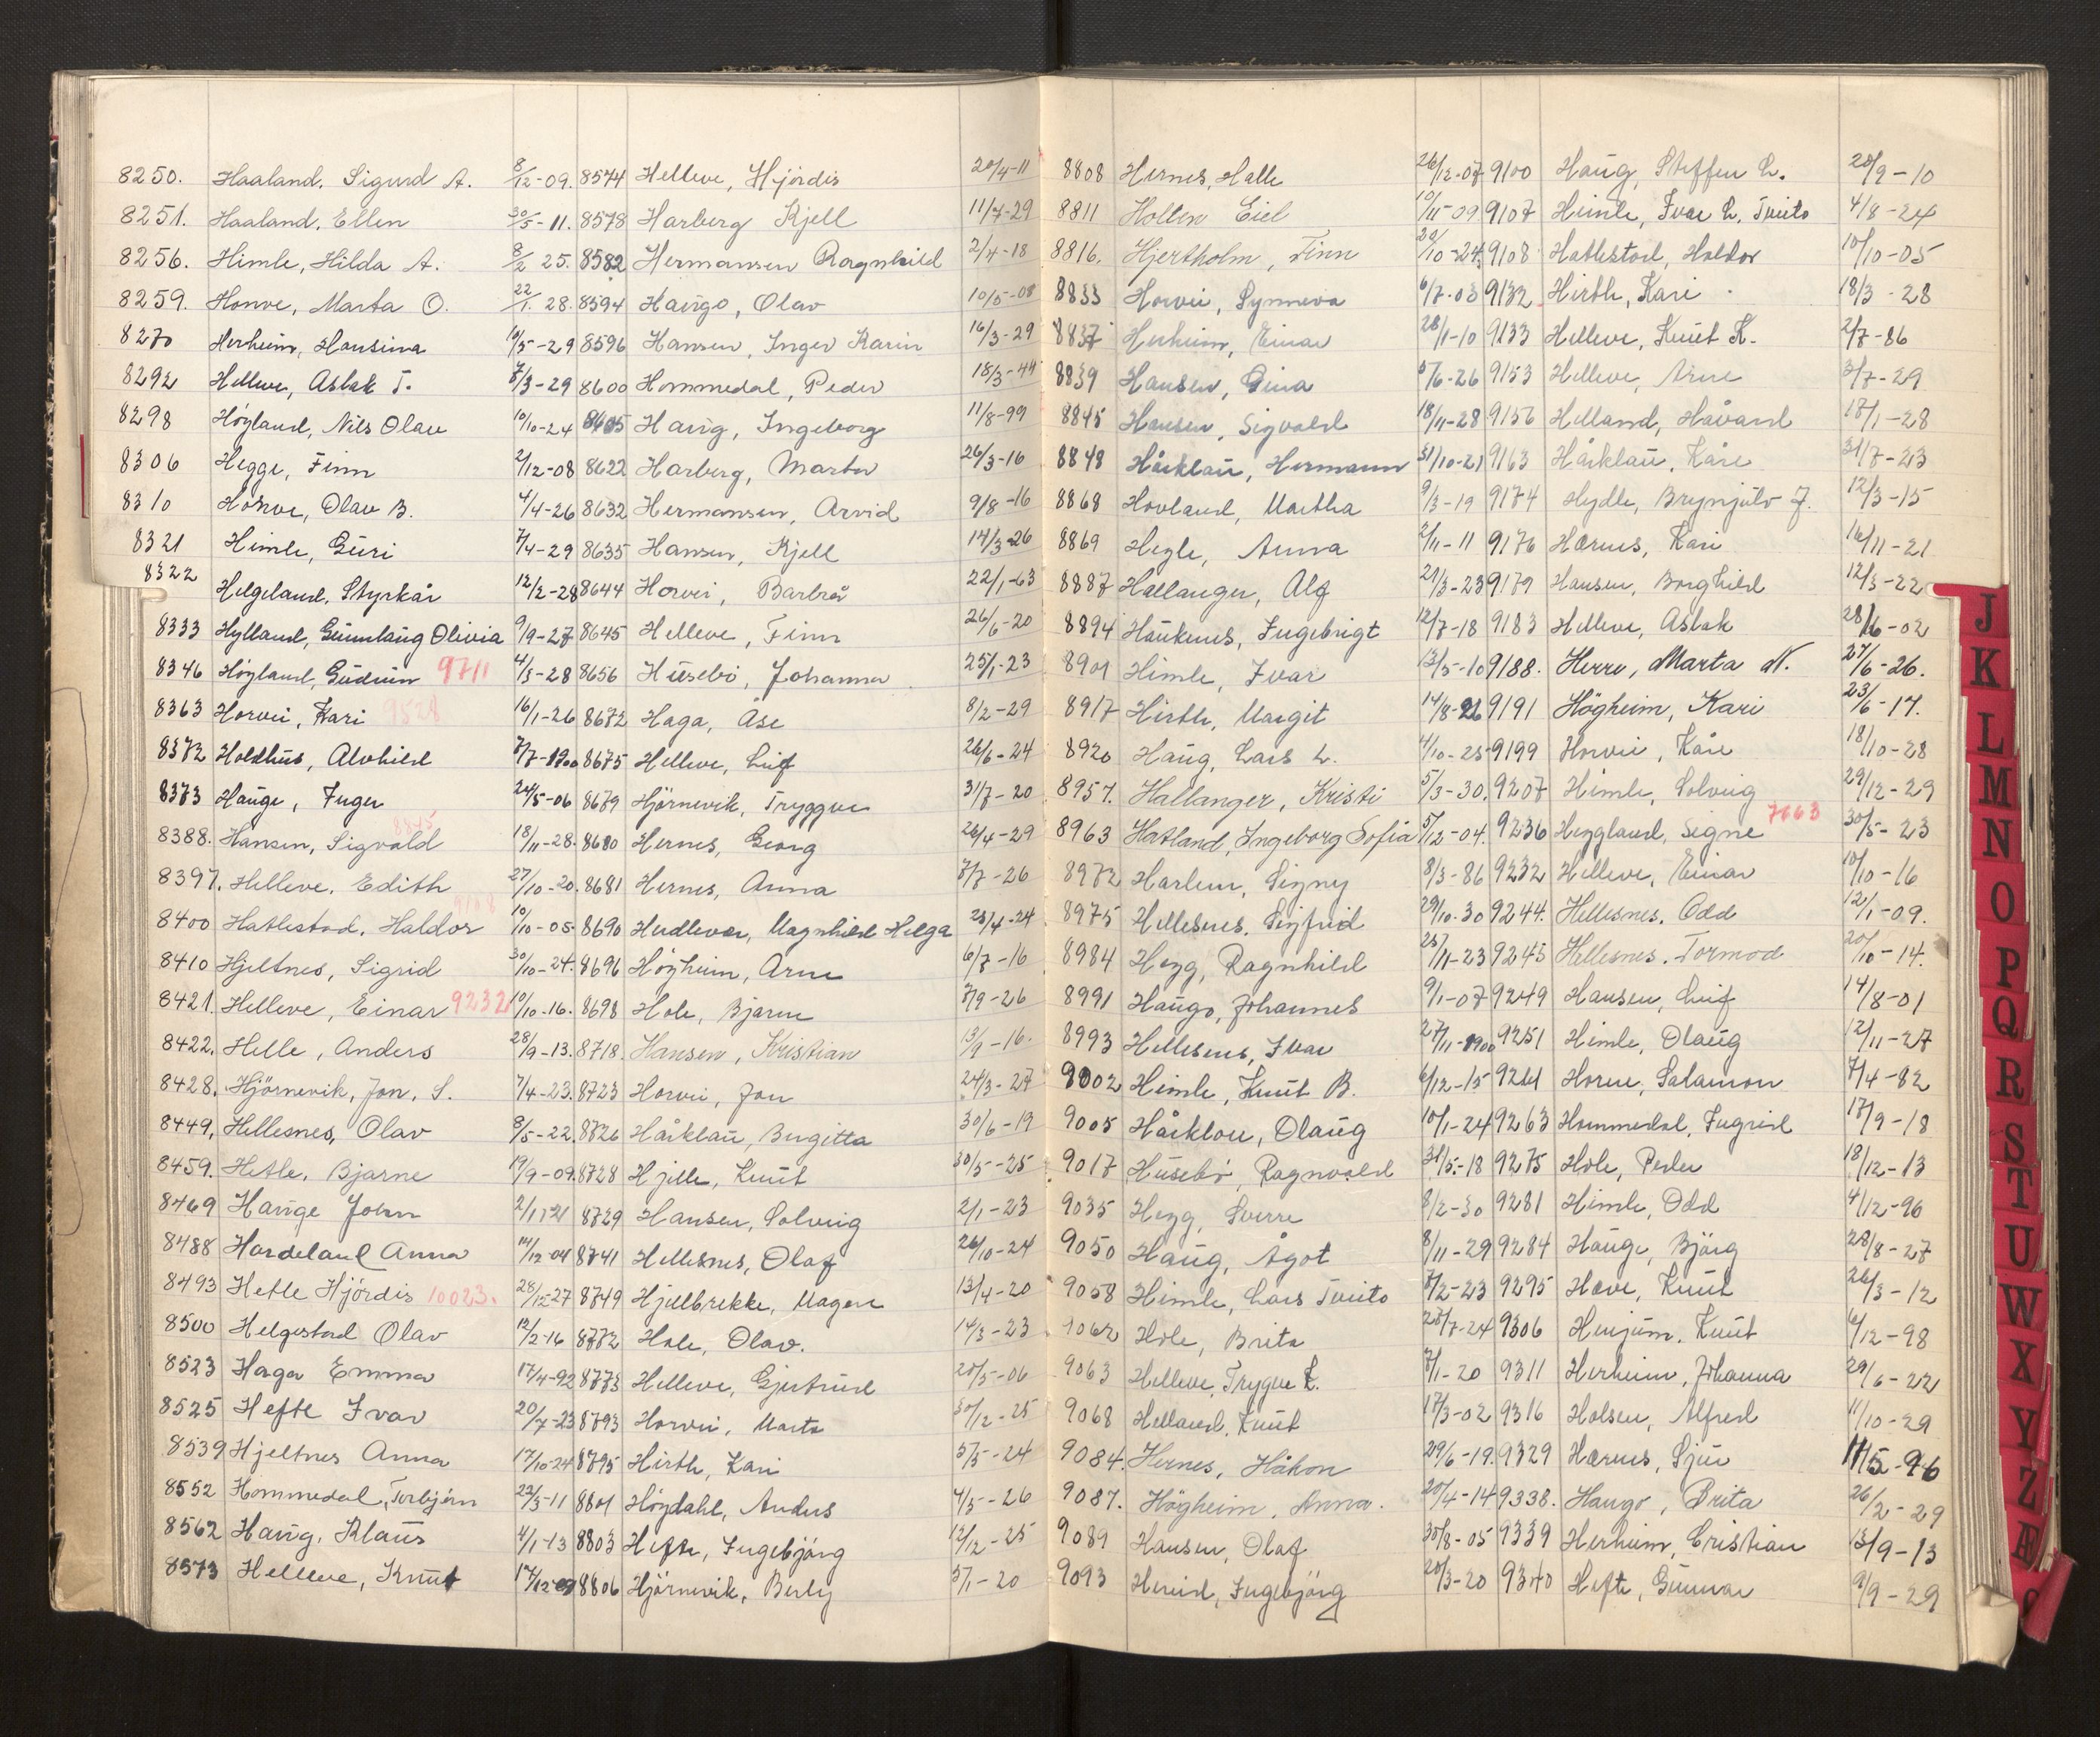 8250. Haaland, Sigurd A. 8/12-09.
8251. Haaland, Ellen 30/5-11.
8256. Himle, Hilda A. 8/2 25.
8259. Honve, Marta O. 22/1. 28.
8270 Herheim, Hansina 10/5-29
8292 Helleve, Aslak T. 7/3-29
8298 Høyland, Nils Olav 10/10-24
8306 Hegge, Finn 2/12-08
8310 Honve, Olav B. 4/4-26
8321 Himle, Guri 7/4-29
8322 Helgeland, Styrkår 12/2-28
8333 Hylland, Gunnlaug Olivia 9/9-27
8346 Høyland, Gudrun 9711 4/3-28
8363 Horvei, Kari 9528 16/1-26
8372 Holdhus, Alvhild 7/7-1900
8373 Hauge, Inger 24/5-06
8388. Hansen, Sigvald 8845 18/11-28.
8397. Helleve, Edith 27/10-20.
8400 Hatlestad, Haldor 9108 10/10-05
8410 Hjeltnes, Sigrid 30/10-24.
8421. Helleve, Einar 9232 10/10-16.
8422. Helle, Anders 28/9-13.
8428. Hjörnevik, Jon, S. 7/4-23.
8449. Hellesnes, Olav 8/5-22
8459. Hetle, Bjarne 19/9-09.
8469 Hauge John 2/11-21
8488 Hardeland Anna 14/12-04
8493 Hefte Hjördis 10023. 28/12-27
8500 Helgestad Olav 12/2-16
8523 Haga Emma 17/4-92
8525 Hefte Ivar 20/7-23
8539 Hjeltnes Anna 17/10-24
8552 Hommedal, Torbjörn 22/3-11
8562 Haug, Klaus 4/1-13
8573 Helleve, Knut 17/12-09
8574 Helleve, Hjördis 20/4-11
8578 Harberg Kjell 11/7-29
8582 Hermansen Ragnhild 2/4-18
8594 Haugo, Olav 10/5-08
8596 Hansen, Inger Karin 16/3-29
8600 Hommedal, Peder 18/3-44
8605 Haug, Ingeborg 11/8-99
8622 Harberg, Marta 26/3-16
8632 Hermansen, Arvid 9/8-16
8635 Hansen, Kjell 14/3-26
8644 Horvei, Barbra 22/1-63
8645 Helleve, Finn 26/6-20
8656 Husebö, Johanna 25/1-23
8672 Haga, Åse 8/2-29
8675 Helleve, Leif 26/6-24
8679 Hjörnevik, Tryggve 31/7-20
8680 Hernes, Georg 26/4-29
8681 Hernes, Anna 7/7-26
8690 Hudlevar, Magnhild Helga 23/4-24
8696 Høyheim, Arne 6/7-16
8698 Hole, Bjarne 7/9-26
8718. Hansen, Kristian 13/9-16.
8723 Horvei, Jon 24/3-27
8726 Håsklau, Birgitta 30/6-19
8728 Hjelle, Knut 30/5-25
8729 Hansen, Solveig 2/1-23
8741 Hellesnes, Olaf 26/10-24
8749 Hjelbrekke, Magne 13/4-20
8772 Hole, Olav. 14/3-23
8773 Helleve, Gjertrud 20/5-06
8793 Horvei, Marta 30/12-25
8795 Hirth, Kari 5/5-24
8801 Høydahl, Anders 4/5-26
8803 Hefte, Ingebjörg 12/12-25
8806 Hjörnevik, Berly 5/1-20
8808 Hernes, Halle 26/12-07
8811 Holten Eiel 10/11-09
8816. Hjertholm, Finn 20/10-24.
8833 Horvei, Synneva 6/7-08
8837 Herheim, Einar 28/1-10
8839 Hansen, Gina 5/6-26
8845 Hansen, Sigvald 18/11-28
8848 Håsklau, Hermann 31/10-21
8868 Hovland, Martha 9/3-19
8869 Hegle, Anna 2/11-11
8887 Hallanger, Alf 21/3-23
8894 Haukenes, Ingebrigt 12/7-18
8901 Himle, Ivar 13/5-10
8917 Hirth, Margit 14/8-26
8920 Haug, Lars L. 4/10-25
8957. Hallanger, Kristi 5/3-30.
8963 Hatland, Ingeborg Sofia 5/12-04.
8972 Harlem, Signy 8/3-86
8975 Hellesnes, Sigfrid 29/10.30
8984 Hegg, Ragnhild 25/11-23
8991 Haugo, Johannes 9/1-07
8993 Hellesnes, Ivar 27/11-1900
9002 Himle, Knut B. 6/12-15
9005 Håsklau, Olaug 10/1-24
9017 Husebö, Ragnvald 31/5-18
9035 Hegg, Sverre 8/2-30
9050 Haug, Ågot 8/11-29
9058 Himle, Lars Tveito 7/2-23
9062 Hole, Brita 28/7-24
9063 Helleve, Trygve K. 7/1-20
9068 Helland, Knut 17/3-02
9084. Hernes, Håkon 29/6-19.
9087. Högheim, Anna. 20/4-14
9089 Hansen, Olaf 30/8-05
9093 Hereid, Ingebjörg 20/3-20
9100 Haug, Steffen L. 20/9-10
9107 Himle, Ivar L. Tveito 4/8-24
9108 Hatlestad, Haldor 10/10-05
9132 Hirth, Kari 18/3-28
9133 Helleve, Knut K. 2/7-86
9153 Helleve, Arne 3/7-29
9156 Helland, Håvard 17/1-28
9163 Håsklau, Kåre 31/7-23
9174 Hydle, Brynjulv J. 12/3-15
9176 Hærnes, Kari 16/11-21
9179 Hansen, Borghild 12/3-22
9183 Helleve, Aslak 28/6-02
9188. Herre, Marta N. 27/6-26.
9191 Högheim, Kari 23/6-17.
9199 Horvei, Kåre 18/10-28
9207 Himle, Solveig 29/12-29
9236 Heggland, Signe 7663 30/5-23
9232 Helleve, Einar 10/10-16
9244. Hellesnes, Odd 12/1-09.
9245 Hellesnes. Tormod 20/10-14.
9249 Hansen, Leif 14/8-01
9251 Himle, Olaug 12/11-27
9261 Horne, Salamon 7/4-82
9263 Hommedal, Ingrid 17/9-18
9275 Hole, Peder 18/12-13
9281 Himle, Odd 4/12-96
9284 Hauge, Björg 28/8-27
9295 Hæve, Knut 26/3-12
9306 Henjum, Knut 6/12-98
9311 Herheim, Johanna 29/6-22
9316 Holsen, Alfred 11/10-29
9329 Hærnes, Sjur 11/5-96
9338. Haugo, Brita 26/2-29
9339 Herheim, Cristian 13/9-13
9340 Hefte, Gunnar 9/9-29
J
K
L
M
N
O
P
Q
R
S
T
U
W
X
Y
Z
Æ